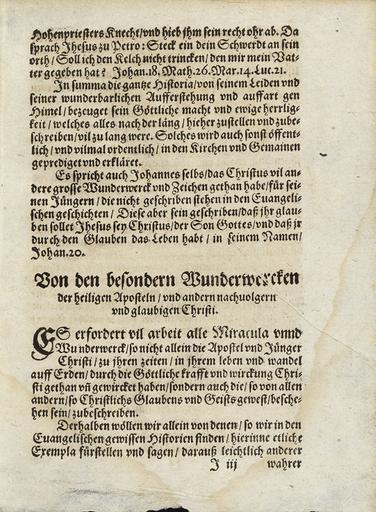 Hohenpriesters Knecht/vnd hieb jhm sein recht ohr ab. Da
sprach Jhesus zu Petro: Steck ein dein Schwerdt an sein
orth/Soll ich den Kelch nicht trincken/den mir mein Vat-
ter gegeben hat? Johan.18. Math.26. Mar.14. Luc.21.
In summa die gantze Historia/von seinem Leiden vnd
seiner wunderbarlichen Aufferstehung vnd auffart gen
Himel/bezeuget sein Göttliche macht vnd ewige herrlig-
keit/welches alles nach der läng/hieher zustellen vnd zube-
schreiben/vil zu lang were. Solches wird auch sonst öffent-
lich/vnd vilmal ordentlich/in den Kirchen vnd Gemainen
geprediget vnd erkläret.
Es spricht auch Johannes selbs/das Christus vil an-
dere grosse Wunderwerck vnd Zeichen gethan habe/für sei-
nen Jüngern/die nicht geschriben stehen in den Euangeli-
schen geschichten/Diese aber sein geschriben/daß jhr glau-
ben sollet Jhesus sey Christus/der Son Gottes/vnd daß jr
durch den Glauben das Leben habt/in seinem Namen/
Johan.20.
Von den besondern Wunderwercken
der heiligen Aposteln/vnd andern nachuolgern
vnd glaubigen Christi.
ES erfordert vil arbeit alle Miracula vnnd
Wunderwerck/so nicht allein die Apostel vnd Jünger
Christi/zu jhren zeiten/in jhrem leben vnd wandel
auff Erden/durch die Göttliche krafft vnd wirckung Chri-
sti gethan vn̄ gewircket haben/sondern auch die/so von allen
andern/so Christlichs Glaubens vnd Geists gewest/besche-
hen sein/zubeschreiben.
Derhalben wöllen wir allein von denen/so wir in den
Euangelischen gewissen Historien finden/hierinne etliche
Exempla fürstellen vnd sagen/darauß leichtlich anderer
J iij wahrer